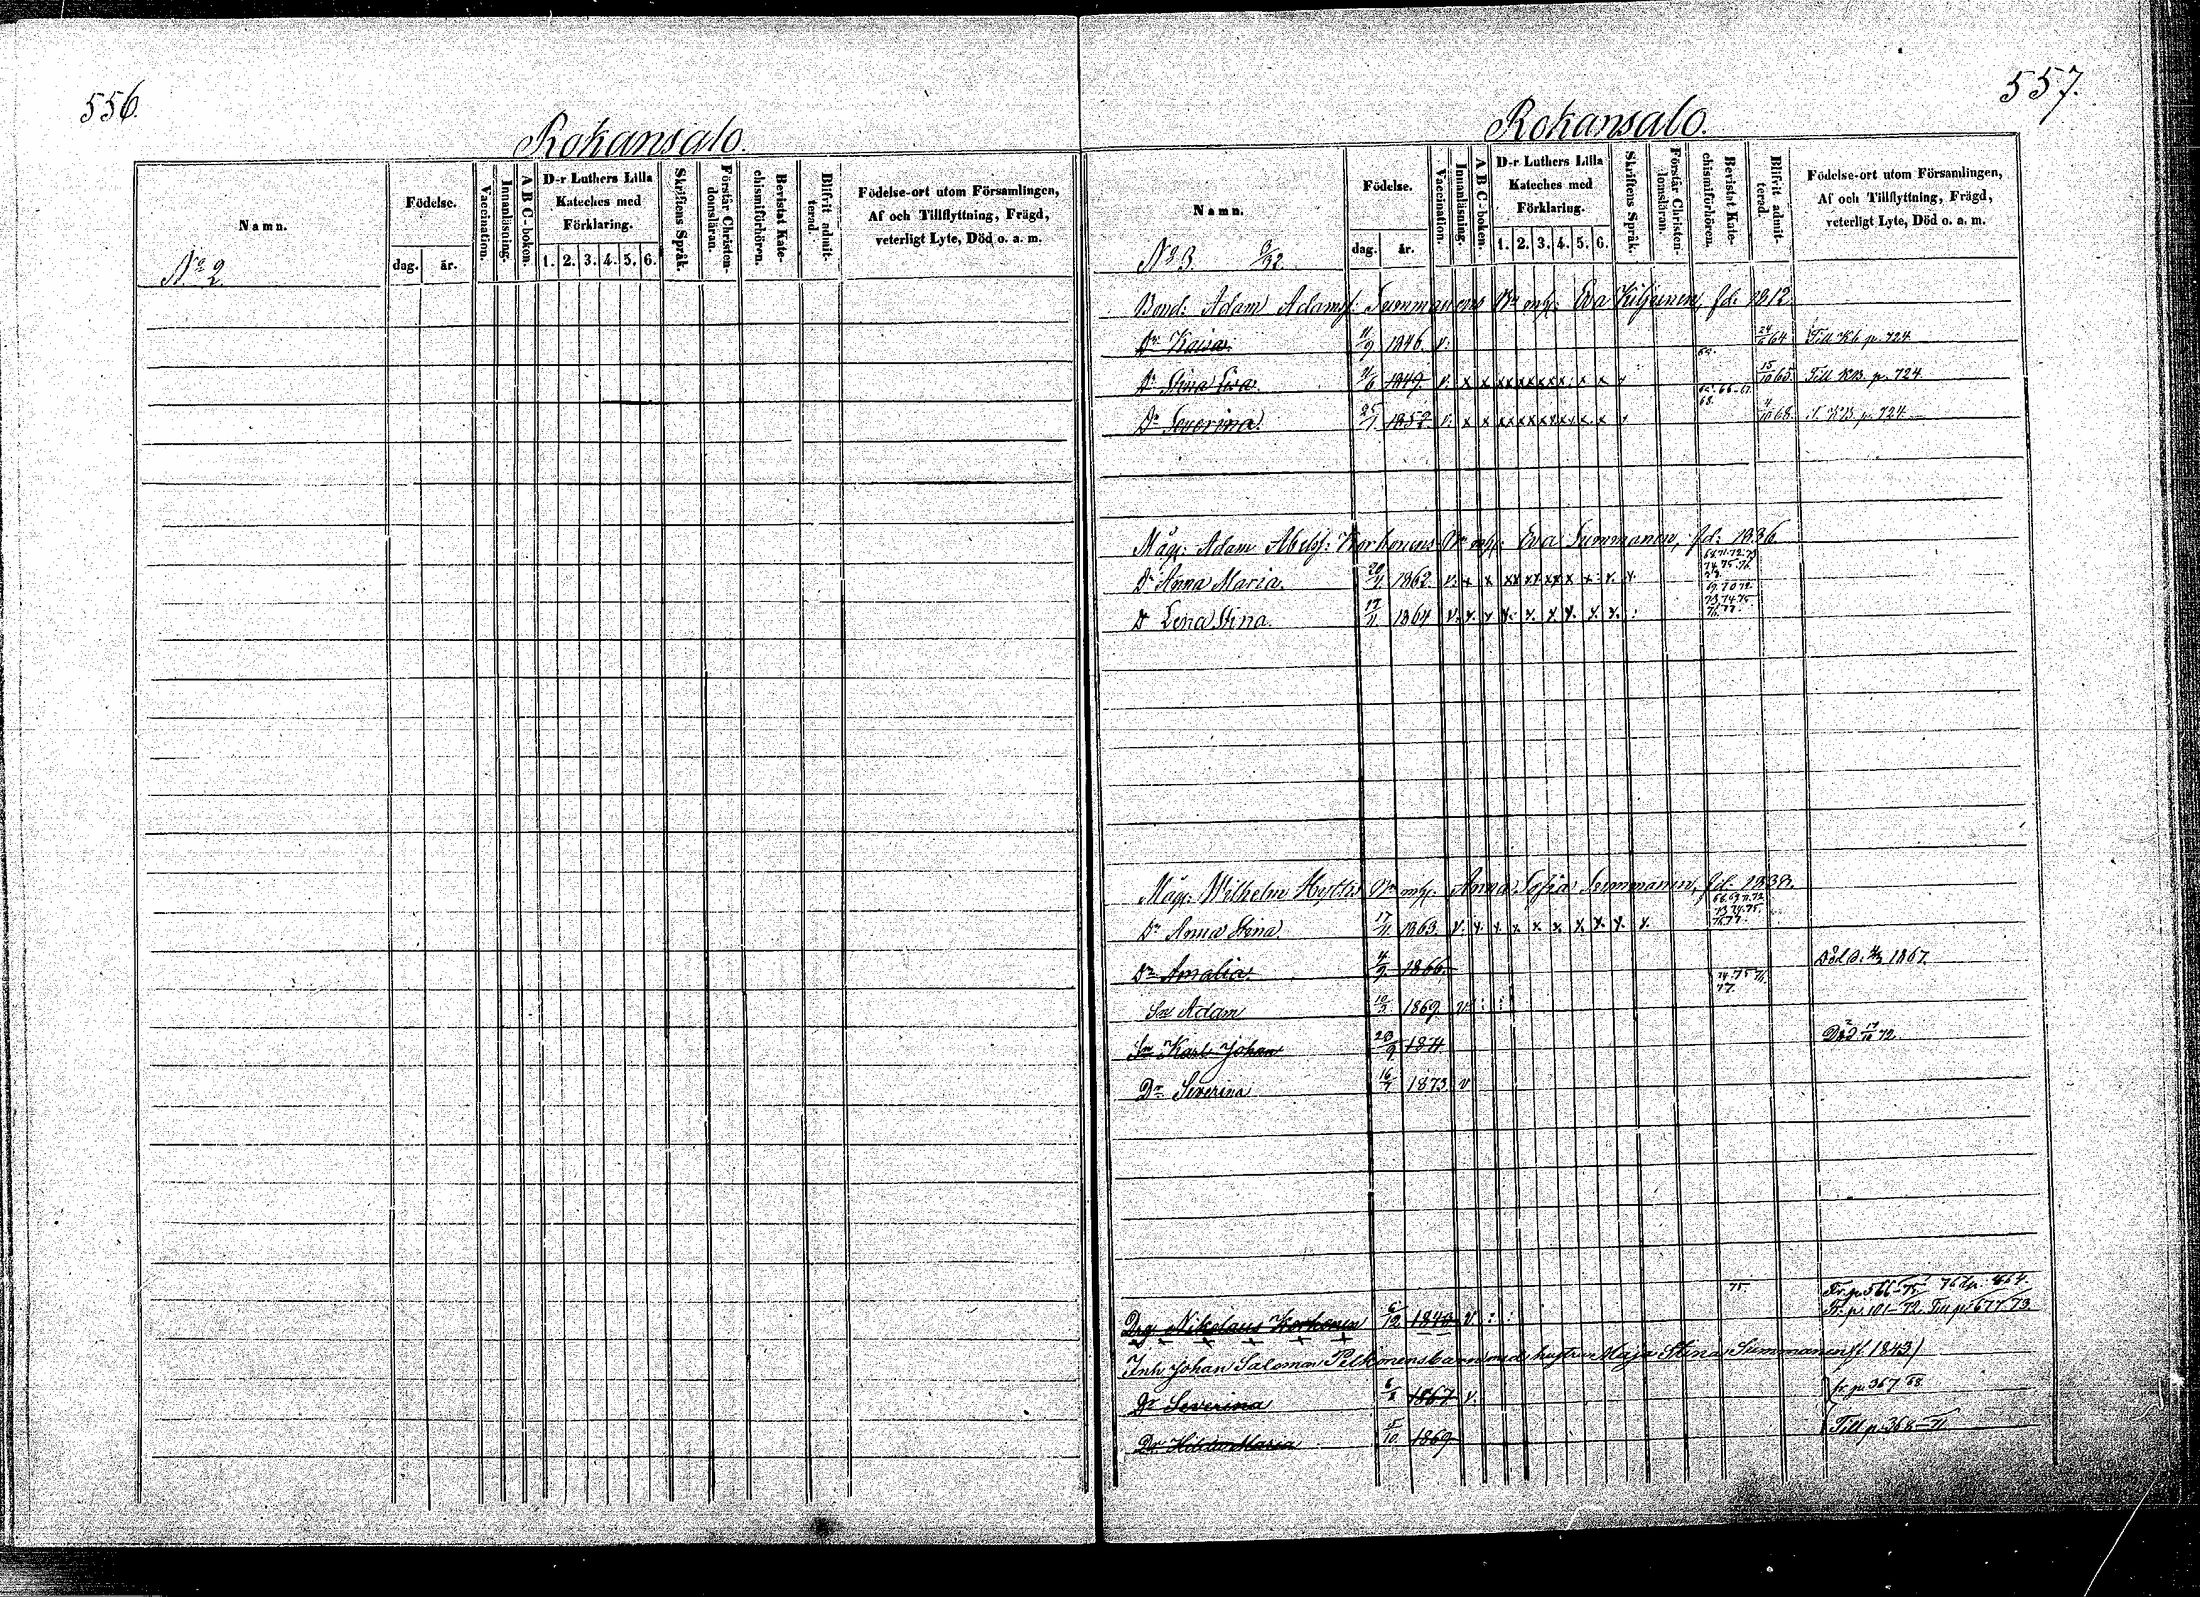 556.
Rokansalo.
Namn.
Födelse.
dag. år.
Vaccination.
Innanläsning.
A B C-boken.
D-r Luthers Lilla Kateches med Förklaring.
1. 2. 3. 4. 5. 6.
Skriftens Språk.
Förstår Christendomsläran.
Bevistat Katechismiförhören.
Blifvit admitterad.
Födelse-ort utom Församlingen,
Af och Tillflyttning, Frägd,
veterligt Lyte, Död o. a. m.
No 2.
557.
Rokansalo.
Namn.
Födelse.
dag. år.
Vaccination.
Innanläsning.
A B C-boken.
D-r Luthers Lilla Kateches med Förklaring.
1. 2. 3. 4. 5. 6.
Skriftens Språk.
Förstår Christendomsläran.
Bevistat Katechismiförhören.
Blifvit admitterad.
Födelse-ort utom Församlingen,
Af och Tillflyttning, Frägd,
veterligt Lyte, Död o. a. m.
No 3.
Bond: Adam Adamsf. Summanens Bn m/h: Eva Kiljunen, fd: 1812.
Dr Kaisa. 11/9 1846. v. 24/ 64 Till Kb p. 724
Dr Stina Eva. 11/6 1849. v. x x x x x x x x x x 66. 67. 68. 15/10 65. Till KB. p. 724.
Dr Severina. 25/1 1852. v. x x x x x x x x x x 4/10 68. T. KB p. 724
Måg: Adam Abelsf: Korhonens Bn m/h: Eva Summanen, fd: 1836
Dr Anna Maria. 20/11 1862. v. x x x x x x x x x x 68. 71. 72. 73 74. 75. 76 77.
Dr Lena Stina. 17/11 1864 v. x. x x. x. x x. x. x. 69. 70 72. 73. 74. 75. 76. 77.
Måg: Wilhelm Bn m/h. Anna Sofia Summanen, fd: 1838.
Dr Anna Stina. 17/11 1863. v. x. x. x. x. x. x. x. x. x. 68. 69. 71. 72 73. 74. 75. 76. 77.
Dr Amalia. 4/9 1866. Död 1867.
Sn Adam 10/3 1869 v : : 74. 75 76. 77.
Sn Karl Johan 20/9 1871 Död 17/10 72.
Dr Severina 16/7 1873. v
75. Fr. p. 566-75 76 till p. 464.
Drg: Nikolaus Korhonen 6/12 1843 v : : Fr. p. 101-72. Till p. 677. 73.
Inh. Johan Salomon Pelkonens barn med hustrun Maja Stina Summanen (f. 1843)
Dr Severina 6/2 1867 v. fr. p. 367 68.
Dr Hilda Maria 5/10. 1869 Till p. 368-71